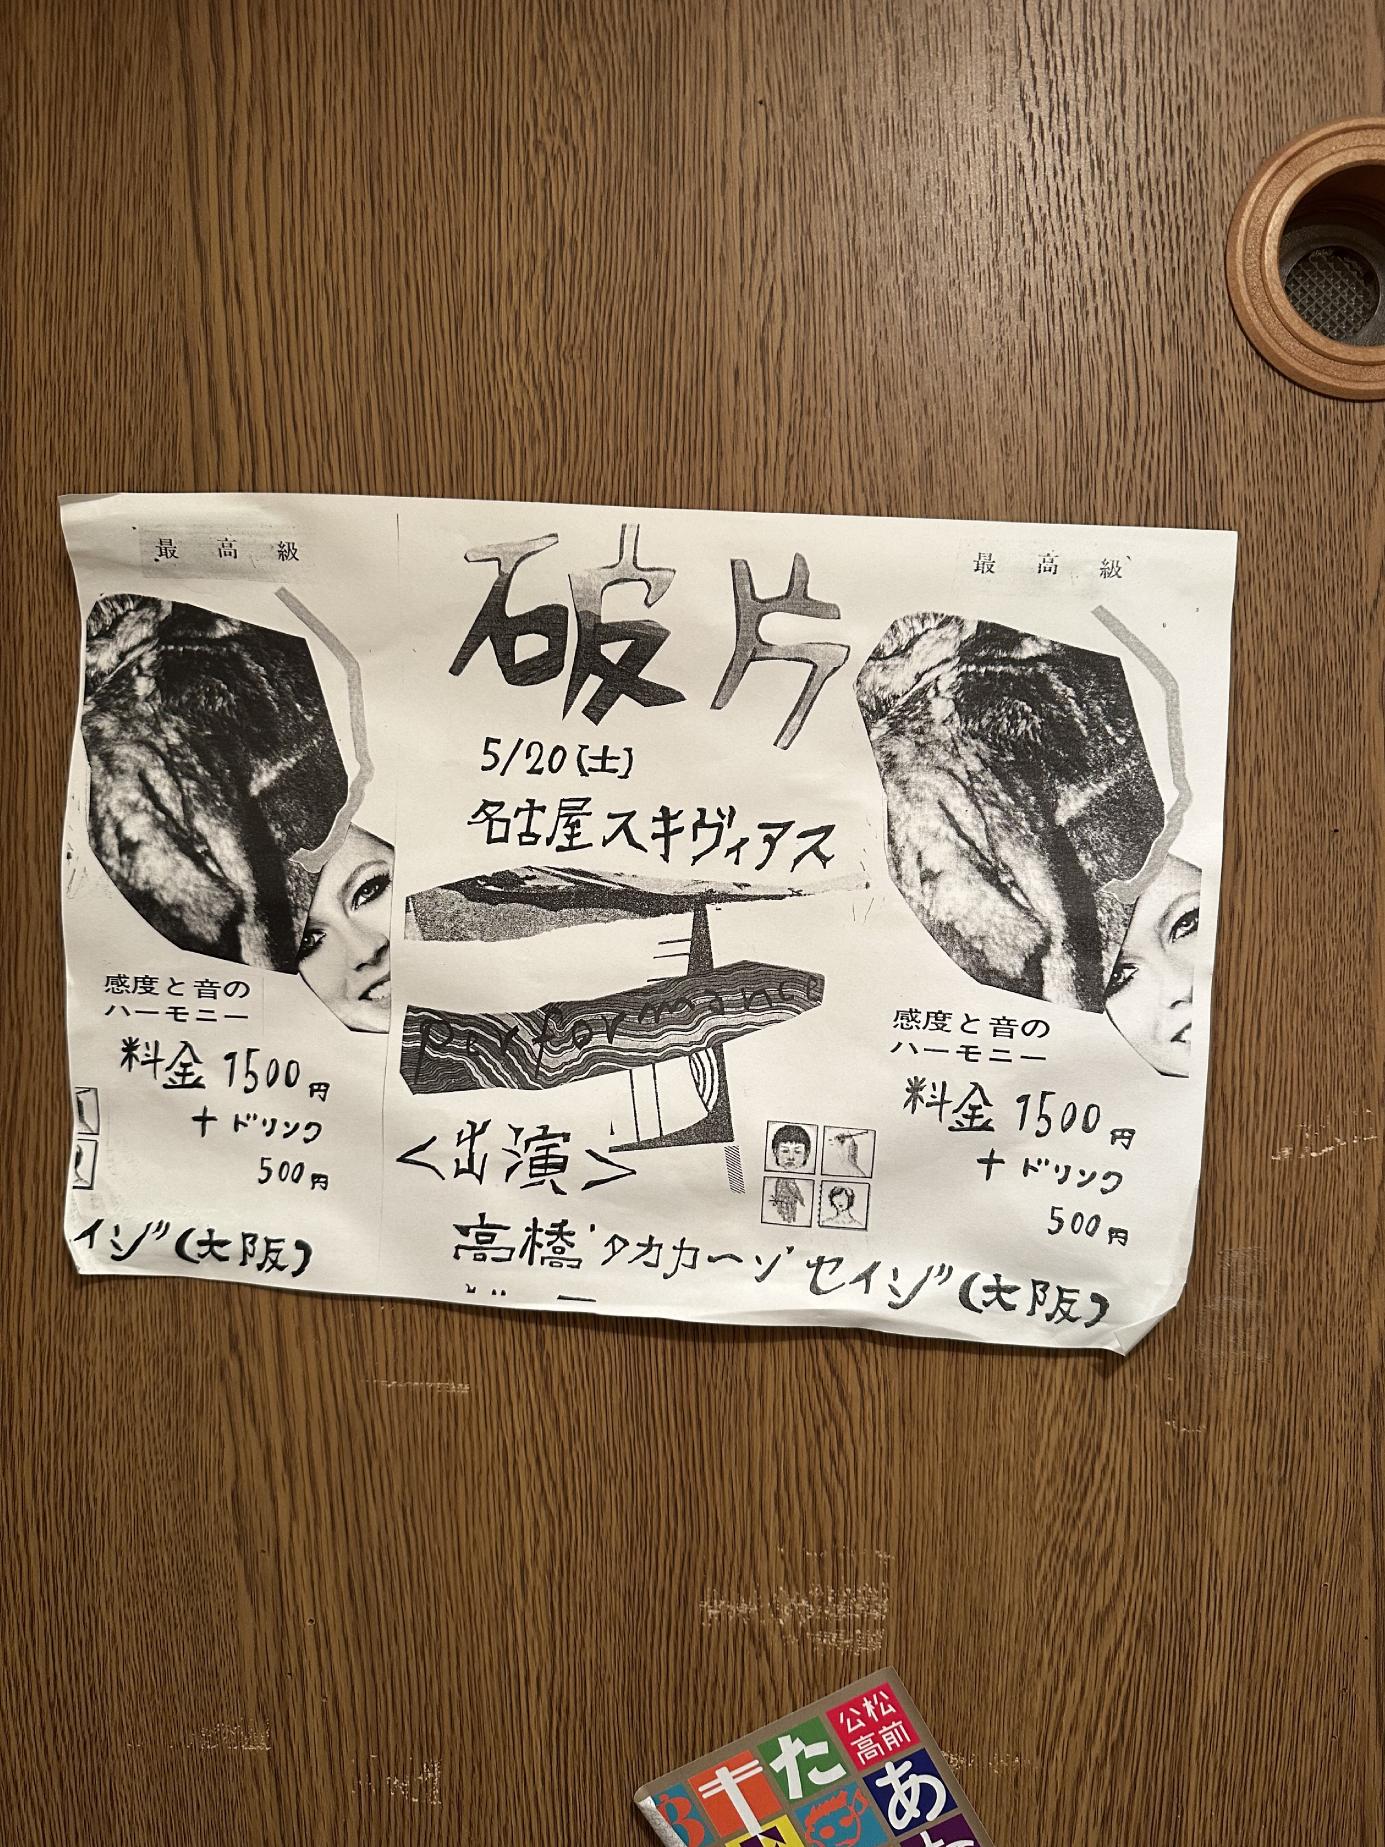 最高級
感度と音の
ハーモニー
料金 1500円
+ ドリンク
500円
イジ"(大阪)
破片
5/20(土)
名古屋スキヴィアス
performance
<出演>
高橋'タカカーゾ'セイジ"(大阪)
最高級
感度と音の
ハーモニー
料金 1500円
+ ドリンク
500円
松前
公高
た
キ
あ